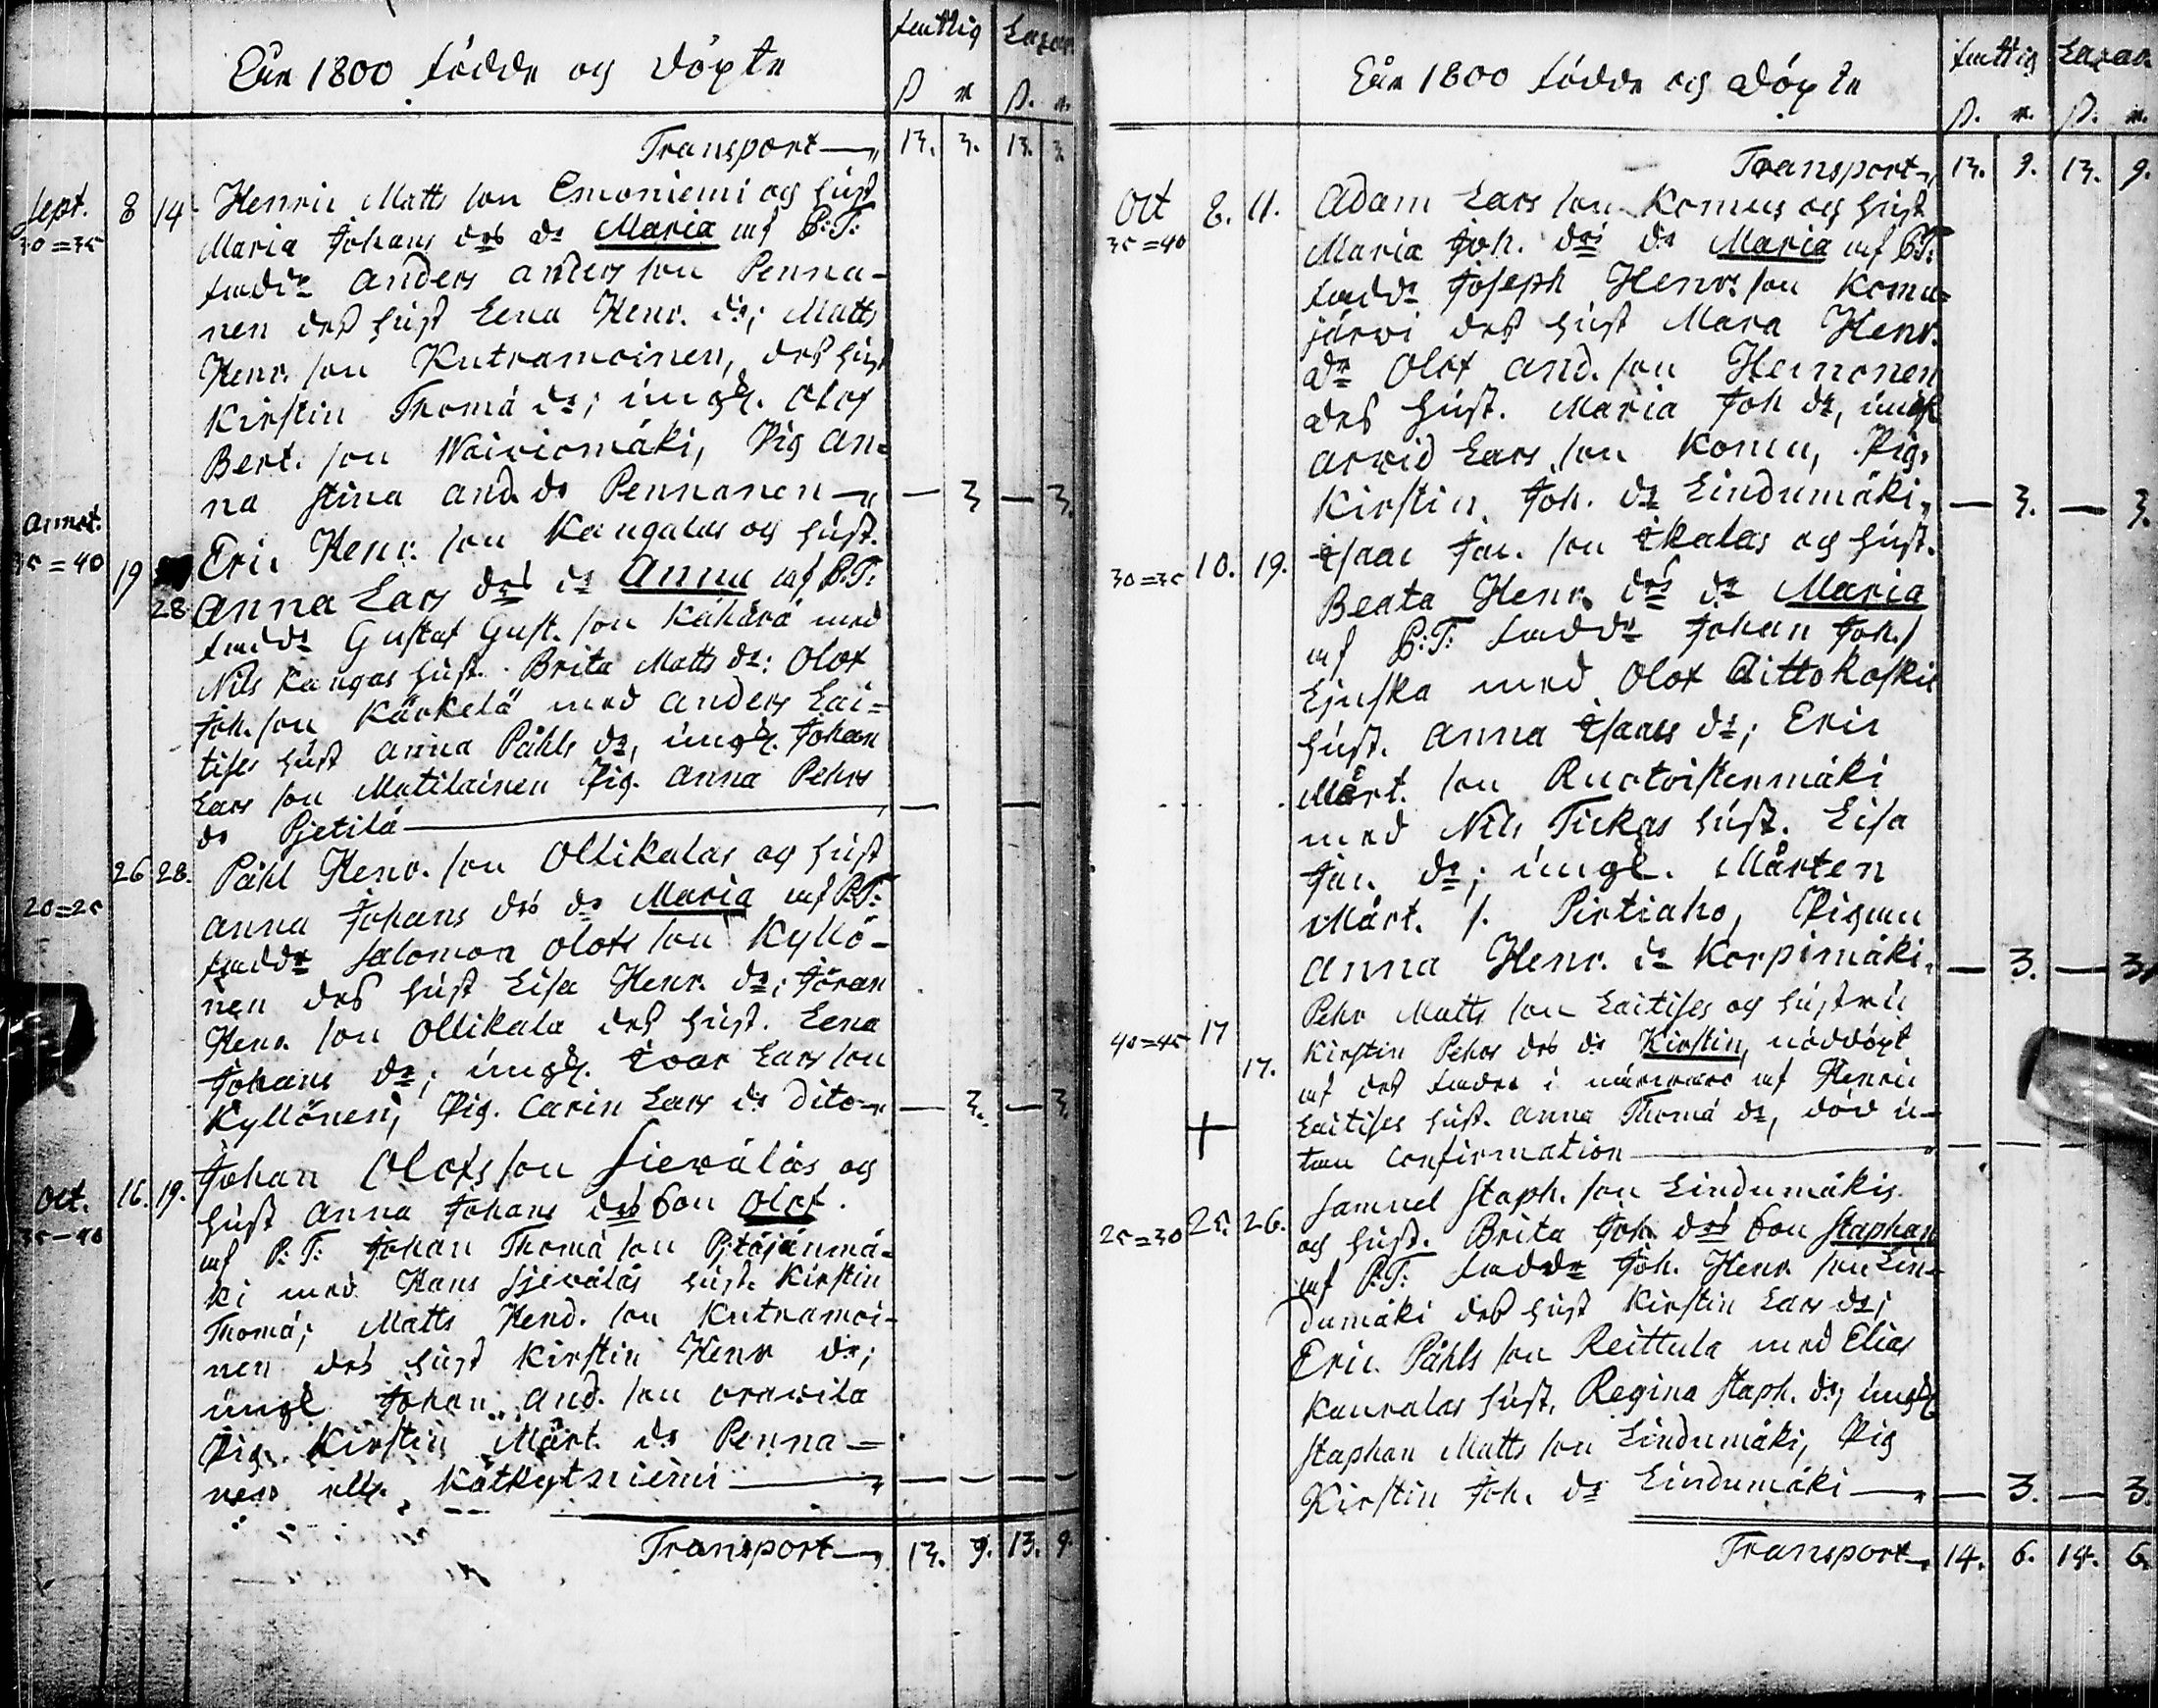 Åhr 1800 födde og döpte
fattig Lazar.
ß r ß. r.
Transport 13. 3. 13. 3
Sept. 8 14 Henric Matts son Emoniemi og hust
30=35 Maria Johans des dr Maria af P:T:
fadd: Anders Anders son Penna-
nen des hust Lena Henr. dr; Matts
Henr. son Kutramoinen, des hust
Kirstin Thomä dr; ungk. Olof
Bert. son Waiviomäki, Pig An-
na Stina And. dr Pennanen — 3 — 3.
annot.
35=40 19 Eric Henr. son Kangalas og hust.
28 Anna Lars des dr Anna af P:T:
faddr Gustaf Gust. son Kähärä med
Nils Kangas hust. Brita Matts dr: Olof
Joh. son Kärkelä med Anders Lai-
tises hust Anna Påhls dr, ungk. Johan
Lars son Matilainen Pig. Anna Pehrs
dr Pjetilä — —
26 28. Påhl Henr. son Ollikalas og hust
20=25 Anna Johans des dr Maria af P:T:
faddr Salomon Olofs son Kyllö-
nen des hust Lisa Henr. dr; Jöran
Henr. son Ollikala des hust. Lena
Johans dr; ungk. Ivar Lars son
Kyllönen, Pig. Carin Lars dr dito — 3. — 3.
Oct. 16. 19. Johan Olofs son Sieväläs og
35=40 hust Anna Johans des Son Olof.
af P:T: Johan Thomä son Pjtäjänmä-
ki med Hans Sjeväläs hust. Kirstin
Thomä; Matts Hend. son Kutramoi-
nen des hust Kirstin Henr dr;
ungk Johan And. son Oravila
Pig. Kirstin Mårt. dr Penna-
nen Kätkytniemi — — — —
Transport 13. 9. 13. 9.
Åhr 1800 födde og döpte
fattig Lazar.
ß. r. ß. r.
Transport 13. 9. 13. 9.
Oct 8. 11. Adam Lars son Komus og hust
35=40 Maria Joh. des dr Maria af P:T:
faddr Joseph Henr. son Komu-
järvi des hust Mara Henr.
dr Olof And. son Heinonen
des hust. Maria Joh dr, ungk
Arvid Lars son Komu, Pig.
Kirstin Joh. dr Lindumäki — 3. — 3.
30=35 10. 19. Isaac Jac. son Ikalas og hust.
Beata Henr. des dr Maria
af P:T: faddr Johan Joh. s
Ljuska med Olof Aittokoskis
hust. Anna Isaacs dr; Eric
Mårt. son Ruotoistenmäki
med Nils Tickas hust. Lisa
Jac. dr; ungk. Mårten
Mårt. s. Pirtiaho, Pigan
Anna Henr. dr Korpimäki. — 3. — 3.
40=45 17 Pehr Matts son Laitises og hustru
Kirstin Pehrs des dr Kirstin, nöddöpt
17. af des fader i närvaro af Henric
+ Laitises hust. Anna Thomä dr, död u-
tan Confirmation — —
Samuel Staph. son Lindumäkis
25=30 25. 26. og hust. Brita Joh. des Son Staphan
af P:T: faddr Joh. Henr. son Lin-
dumäki des hust Kirstin Lars dr;
Eric Påhls son Reittula med Elias
Kauralas hust, Regina Staph. dr; ungk
Staphan Matts son Lindumäki, Pig
Kirstin Joh. dr Lindumäki — 3. — 3.
Transport 14. 6. 14. 6.